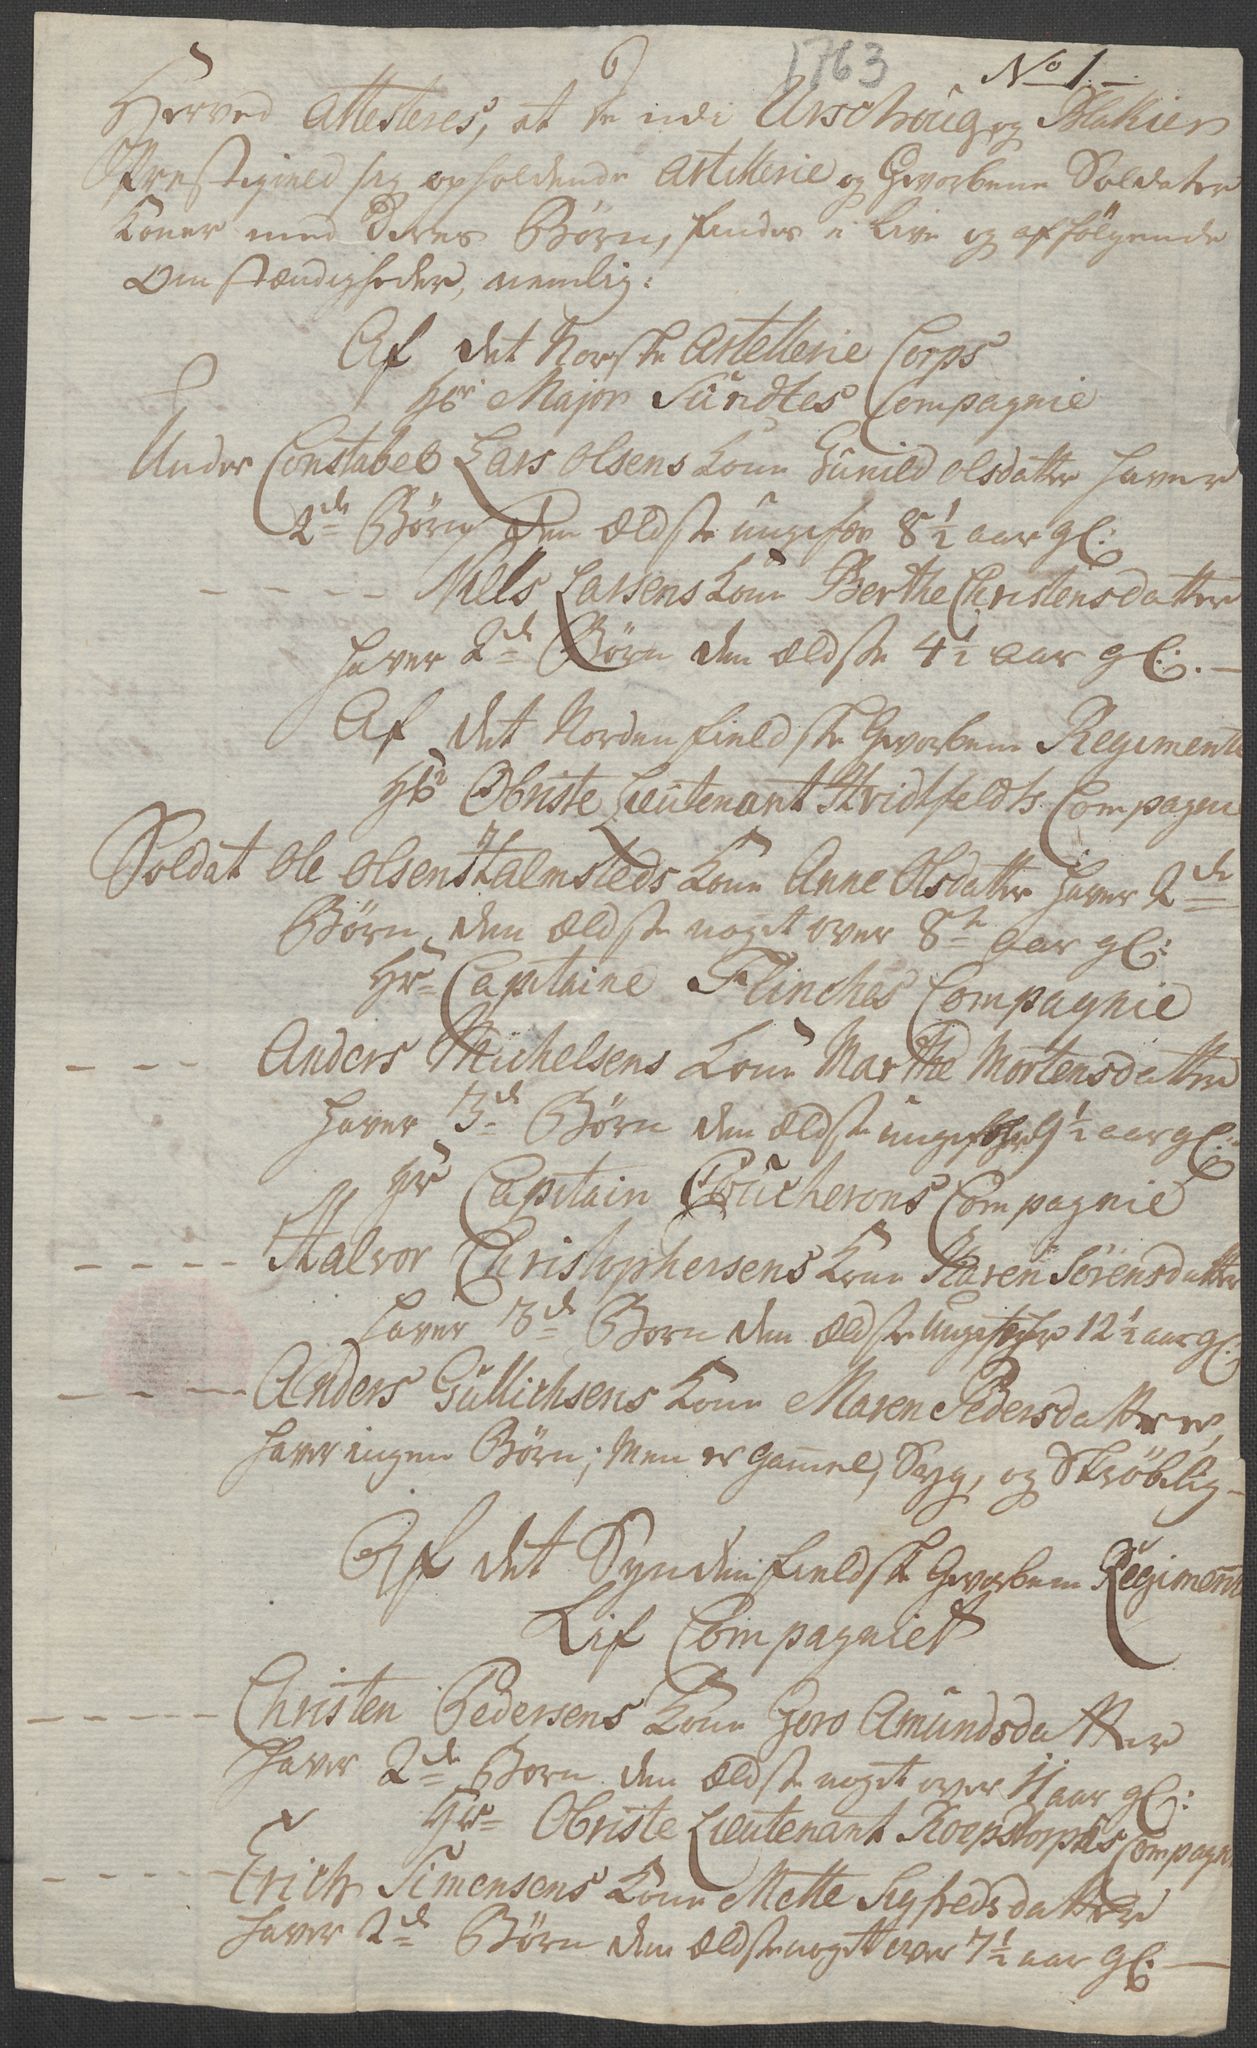 1763
No 1.
Herved Attesteres, at de udi Urschoug og Blakier
Prestegield sig opholdende Artillerie og Gevorbene Soldater
Koner med Deres Børn, findes i Live og af følgende
Omstændigheder, nemlig:
Af det Norske Artellerie Corps
Hr Major Sundtes Compagnie
Under Constabel Lars Olsens Kone Gunild Olsdatter haver
2de Børn Den Ældste ungefær 8½ aar gl:
- - - - Nells Larsens Kone Berthe Christensdatter
haver 2de Børn den Ældste 4½ Aar gl:. -
Af det Nordenfieldske Gevorbene Regimente
Hr Obriste Lieutenant Hvidtfeldts Compagnie
Soldat Ole Olsens Halmsteds Kone Anne Olsdatter haver 2de
Børn, den Ældste noget over 8te Aar gl:
Hr Capitaine Flinches Compagnie
- - - Anders Michelsens Kone Marthe Mortensdatter
haver 3de Børn den Ældste ungefehr 9½ aar gl:
Hr Capitain Coucherons Compagnie
- - - - Halvor Christophersens Kone Karen Sørensdatter
haver 3de Børn den Ældste Ungefehr 12½ aar gl:
- - - - Anders Gullichsens Kone Maren Pedersdatter,
haver ingen Børn; Men er gamel, Syg, og Skrøbelig -
Af det Syndenfieldske Gevorbene Regiment
Lif Compagniet
- - - - - Christen Pedersens Kone Goro Amundsdatter
haver 2de Børn den Ældste noget over 11 aar gl:
Hr Obriste Lieutenant Roepstorphs Compagnie
- - - - - Erich Simensens Kone Mette Sigfredsdatter
haver 2de Børn den Ældste noget over 7½ aar gl: -